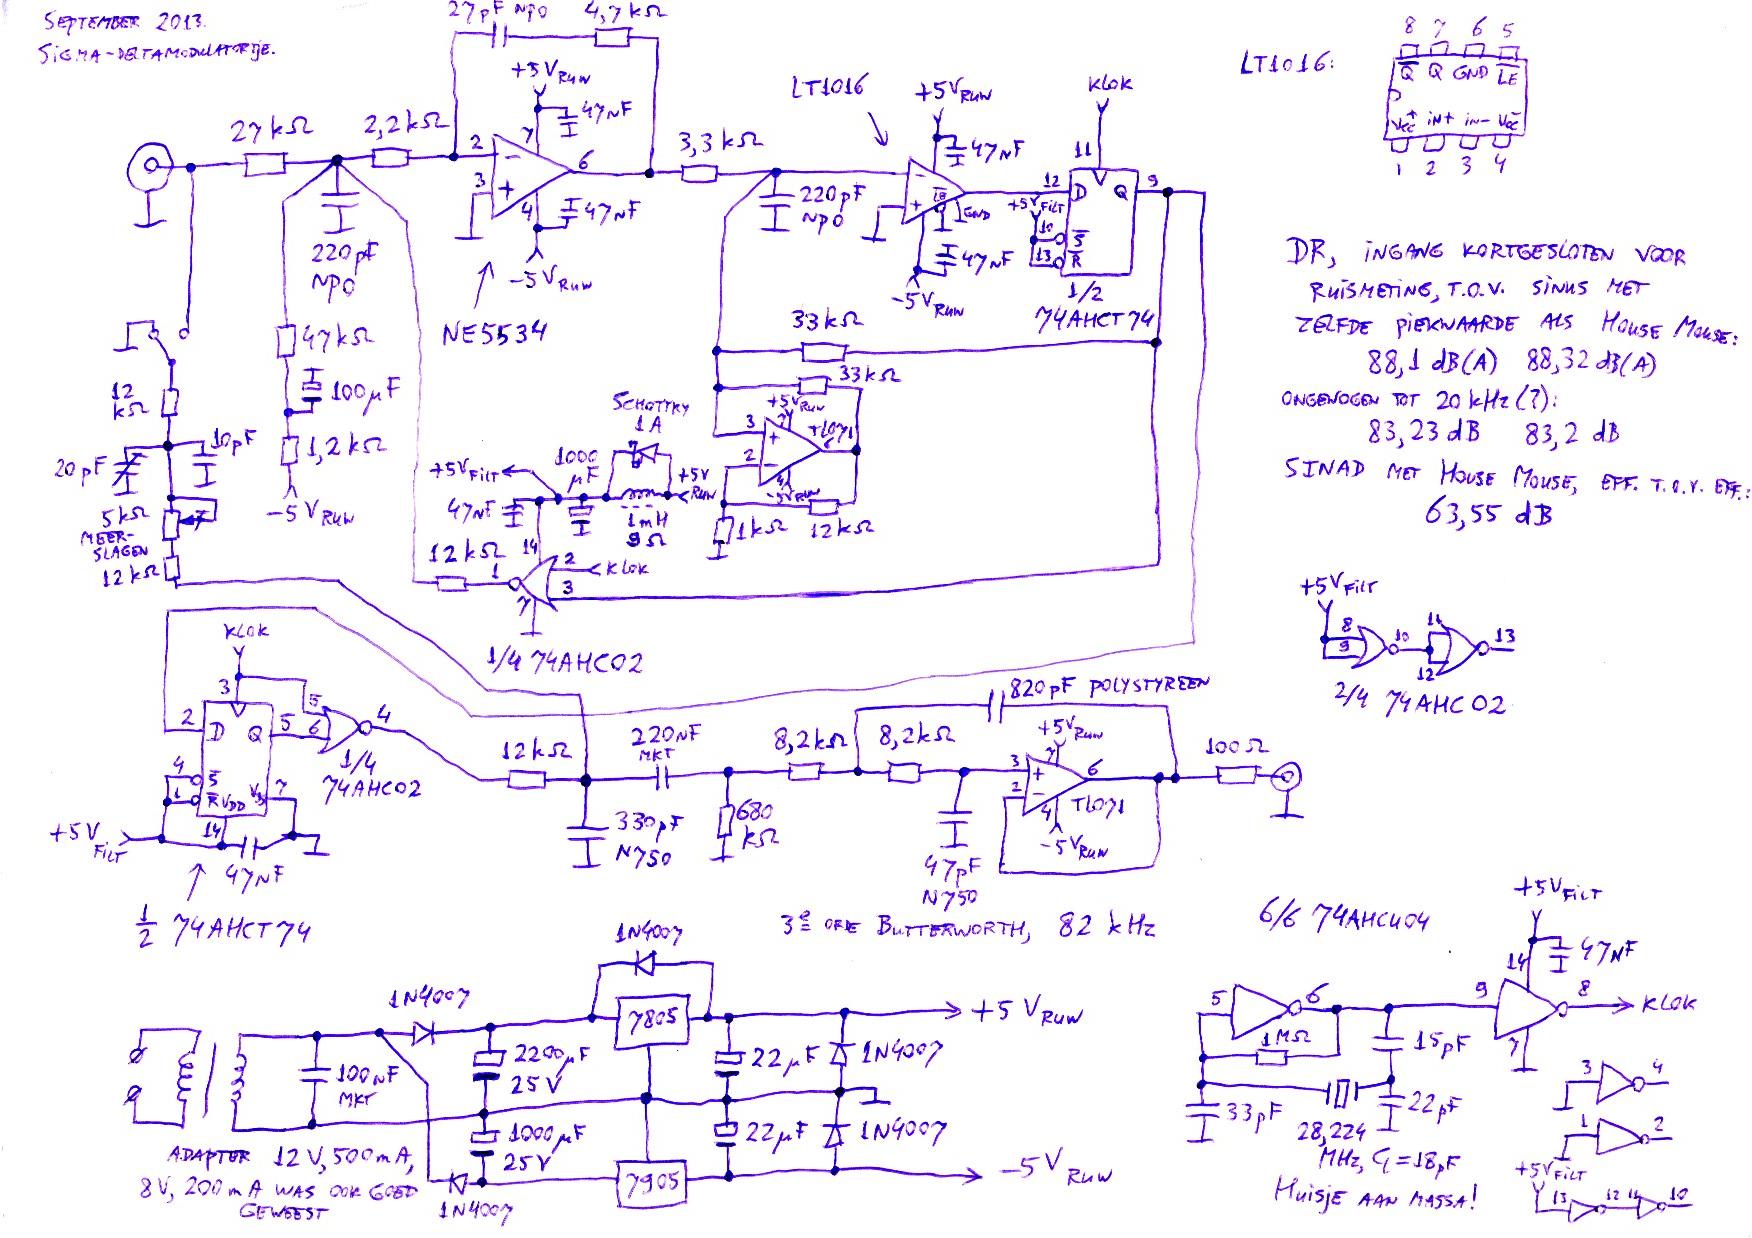 SEPTEMBER 2013.
SIGMA-DELTAMODULATORTJE.
27pF NPO
4,7kΩ
+5VRUW
47NF
27kΩ
2,2kΩ
2
7
6
3
4
47NF
-5VRUW
220pF
NPO
NE5534
3,3kΩ
220pF
NPO
LT1016
+5VRUW
47NF
LE
GND
47NF
-5VRUW
KLOK
11
12
D
Q
9
+5VFILT
10
S
13
R
1/2
74AHCT74
LT1016:
8 7 6 5
Q Q GND LE
Vcc+ IN+ IN- Vcc-
1 2 3 4
DR, INGANG KORTGESLOTEN VOOR
RUISMETING, T.O.V. SINUS MET
ZELFDE PIEKWAARDE ALS HOUSE MOUSE:
88,1 dB(A) 88,32 dB(A)
ONGEWOGEN TOT 20 kHz(?):
83,23 dB 83,2 dB
SINAD MET HOUSE MOUSE, EFF. T.O.V. EFF.:
63,55 dB
12
kΩ
20pF
10pF
5kΩ
MEER-
SLAGEN
12kΩ
47kΩ
100μF
1,2kΩ
-5VRUW
33kΩ
33kΩ
+5VRUW
3
7
TL071
6
2
4
-5VRUW
1kΩ
12kΩ
SCHOTTKY
1A
+5VFILT
1000
μF
+5V
RUW
47NF
1mH
9Ω
12kΩ
14
1
2
KLOK
3
7
1/4 74AHC02
+5VFILT
8
9
10
11
12
13
2/4 74AHC02
KLOK
3
2
D
Q
5
5
6
4
1/4
74AHC02
4
S
1
R
VDD
VSS
7
14
+5V
FILT
47NF
1/2 74AHCT74
12kΩ
330pF
N750
220NF
MKT
680
kΩ
8,2kΩ
8,2kΩ
820pF POLYSTYREEN
47pF
N750
+5VRUW
3
7
6
2
4
TL071
-5VRUW
100Ω
3e ORDE BUTTERWORTH, 82 kHz
1N4007
1N4007
7805
+5 VRUW
100NF
MKT
2200μF
25V
22μF
1N4007
1000μF
25V
22μF
1N4007
7905
-5 VRUW
1N4007
ADAPTER 12V, 500mA,
8V, 200mA WAS OOK GOED
GEWEEST
6/6 74AHCU04
+5VFILT
14
47NF
5
6
9
8
KLOK
7
1MΩ
15pF
33pF
22pF
28,224
MHz, CL=18pF
HUISJE AAN MASSA!
3
4
1
2
+5VFILT
13
12
11
10